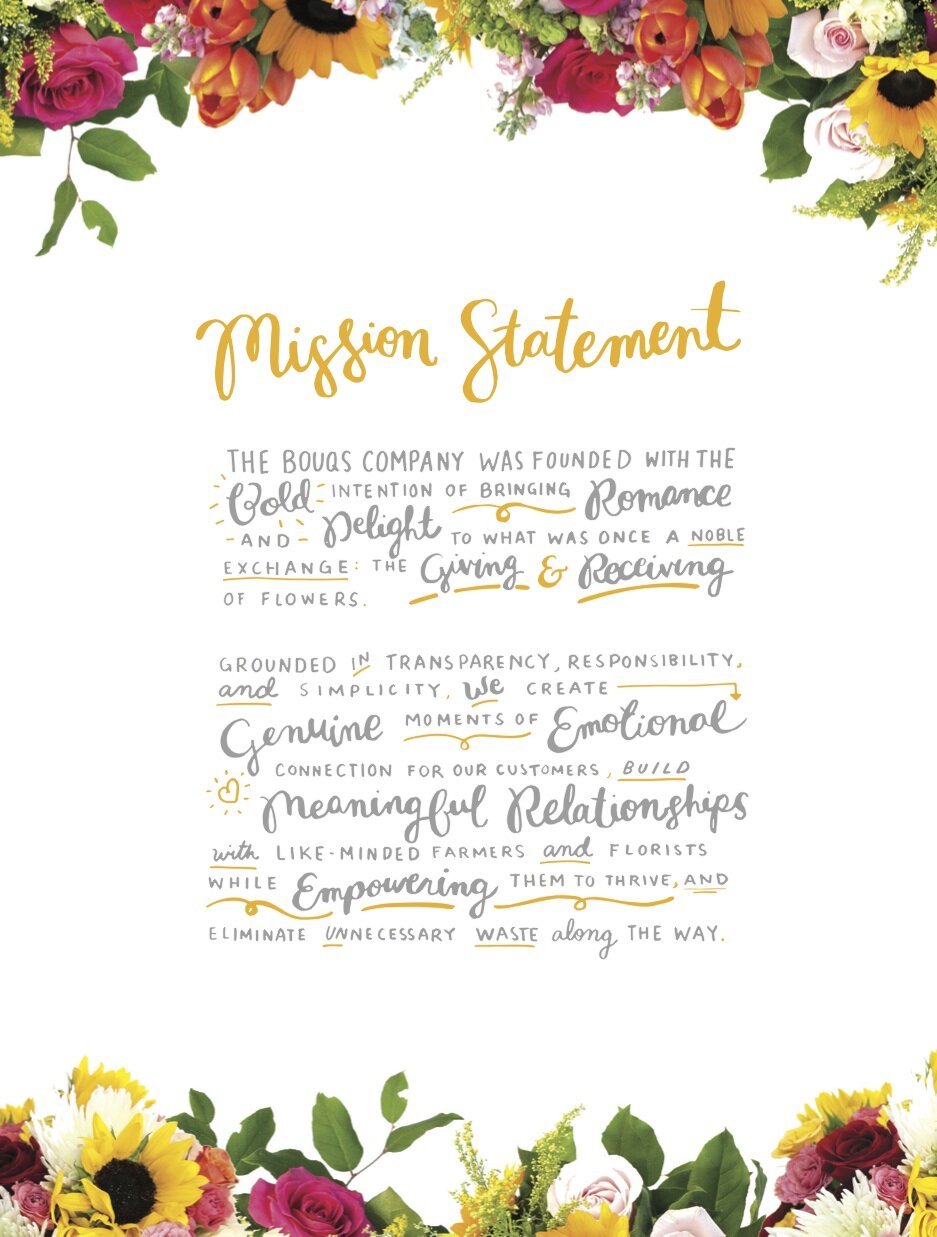 Mission Statement
THE BOUQS COMPANY WAS FOUNDED WITH THE
Bold INTENTION OF BRINGING Romance
AND Delight TO WHAT WAS ONCE A NOBLE
EXCHANGE: THE Giving & Receiving
OF FLOWERS.
GROUNDED IN TRANSPARENCY, RESPONSIBILITY,
and SIMPLICITY, We CREATE
Genuine MOMENTS OF Emotional
CONNECTION FOR OUR CUSTOMERS, BUILD
Meaningful Relationships
with LIKE-MINDED FARMERS and FLORISTS
WHILE Empowering THEM TO THRIVE, AND
ELIMINATE UNNECESSARY WASTE along THE WAY.